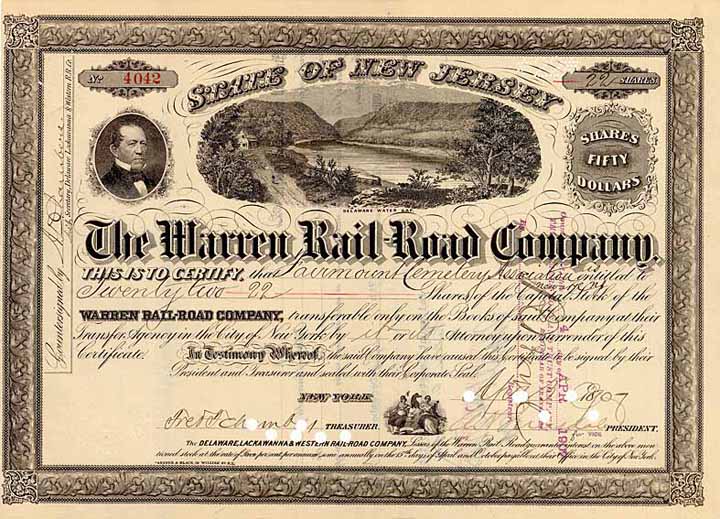 No. 4042
STATE OF NEW JERSEY
22 SHARES
SHARES
FIFTY
DOLLARS
DELAWARE WATER GAP.
The Warren Rail-Road Company.
THIS IS TO CERTIFY, that Fairmount Cemetery Association is entitled to
Twenty two 22 Shares of the Capital Stock of the
WARREN RAIL-ROAD COMPANY, transferable only on the Books of said Company at their
Transfer Agency in the City of New York by it or its Attorney upon surrender of this
Certificate. In Testimony Whereof, the said Company have caused this Certificate to be signed by their
President and Treasurer and sealed with their Corporate Seal.
NEW YORK
TREASURER.
PRESIDENT.
The DELAWARE, LACKAWANNA & WESTERN RAIL-ROAD COMPANY, Lessees of the Warren Rail Road guarantee interest on the above men-
tioned stock at the rate of Seven per cent per annum, semi-annually on the 15th days of April and October payable at their Office in the City of New York.
Countersigned by
Secretary, Delaware, Lackawanna & Western R.R. Co.
APR